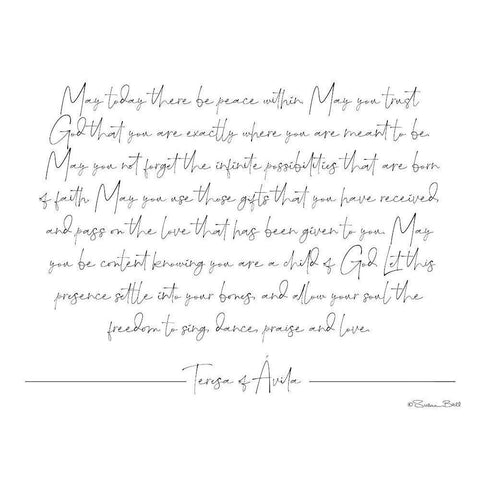 May today there be peace within. May you trust
God that you are exactly where you are meant to be.
May you not forget the infinite possibilities that are born
of faith. May you use those gifts that you have received,
and pass on the love that has been given to you. May
you be content knowing you are a child of God. Let this
presence settle into your bones, and allow your soul the
freedom to sing, dance, praise and love.
Teresa of Ávila
©Susan Ball